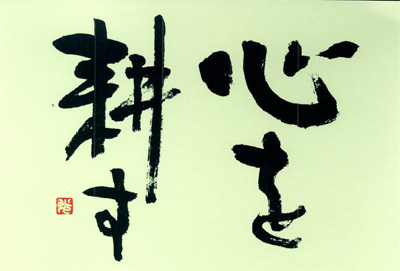 心を
耕す